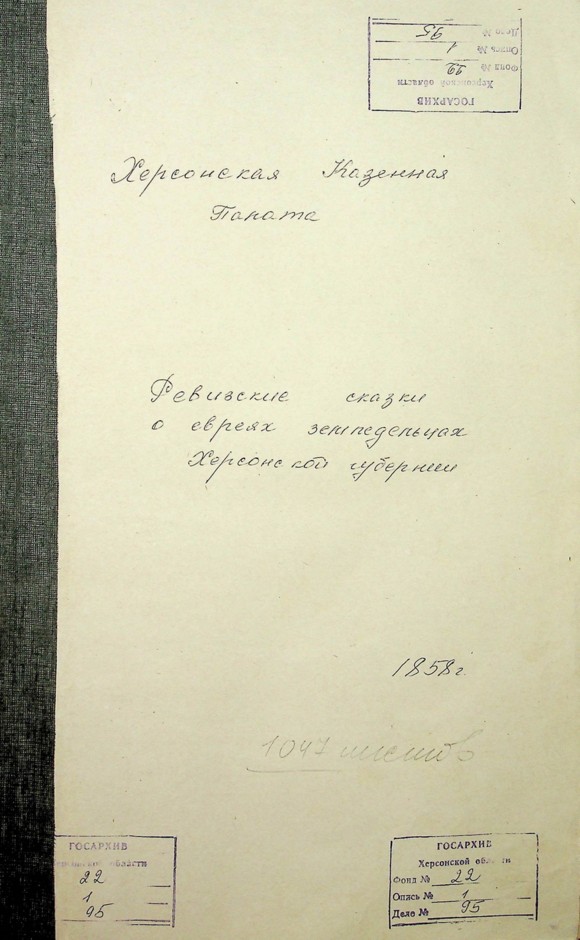 ГОСАРХИВ
Херсонской области
Фонд № 22
Опись № 1
Дело № 95
Херсонская Казенная
Палата
Ревизские сказки
о евреях земледельцах
Херсонской губернии
1858 г.
1047 листов
ГОСАРХИВ
Херсонской области
22
1
95
ГОСАРХИВ
Херсонской области
Фонд № 22
Опись № 1
Дело № 95